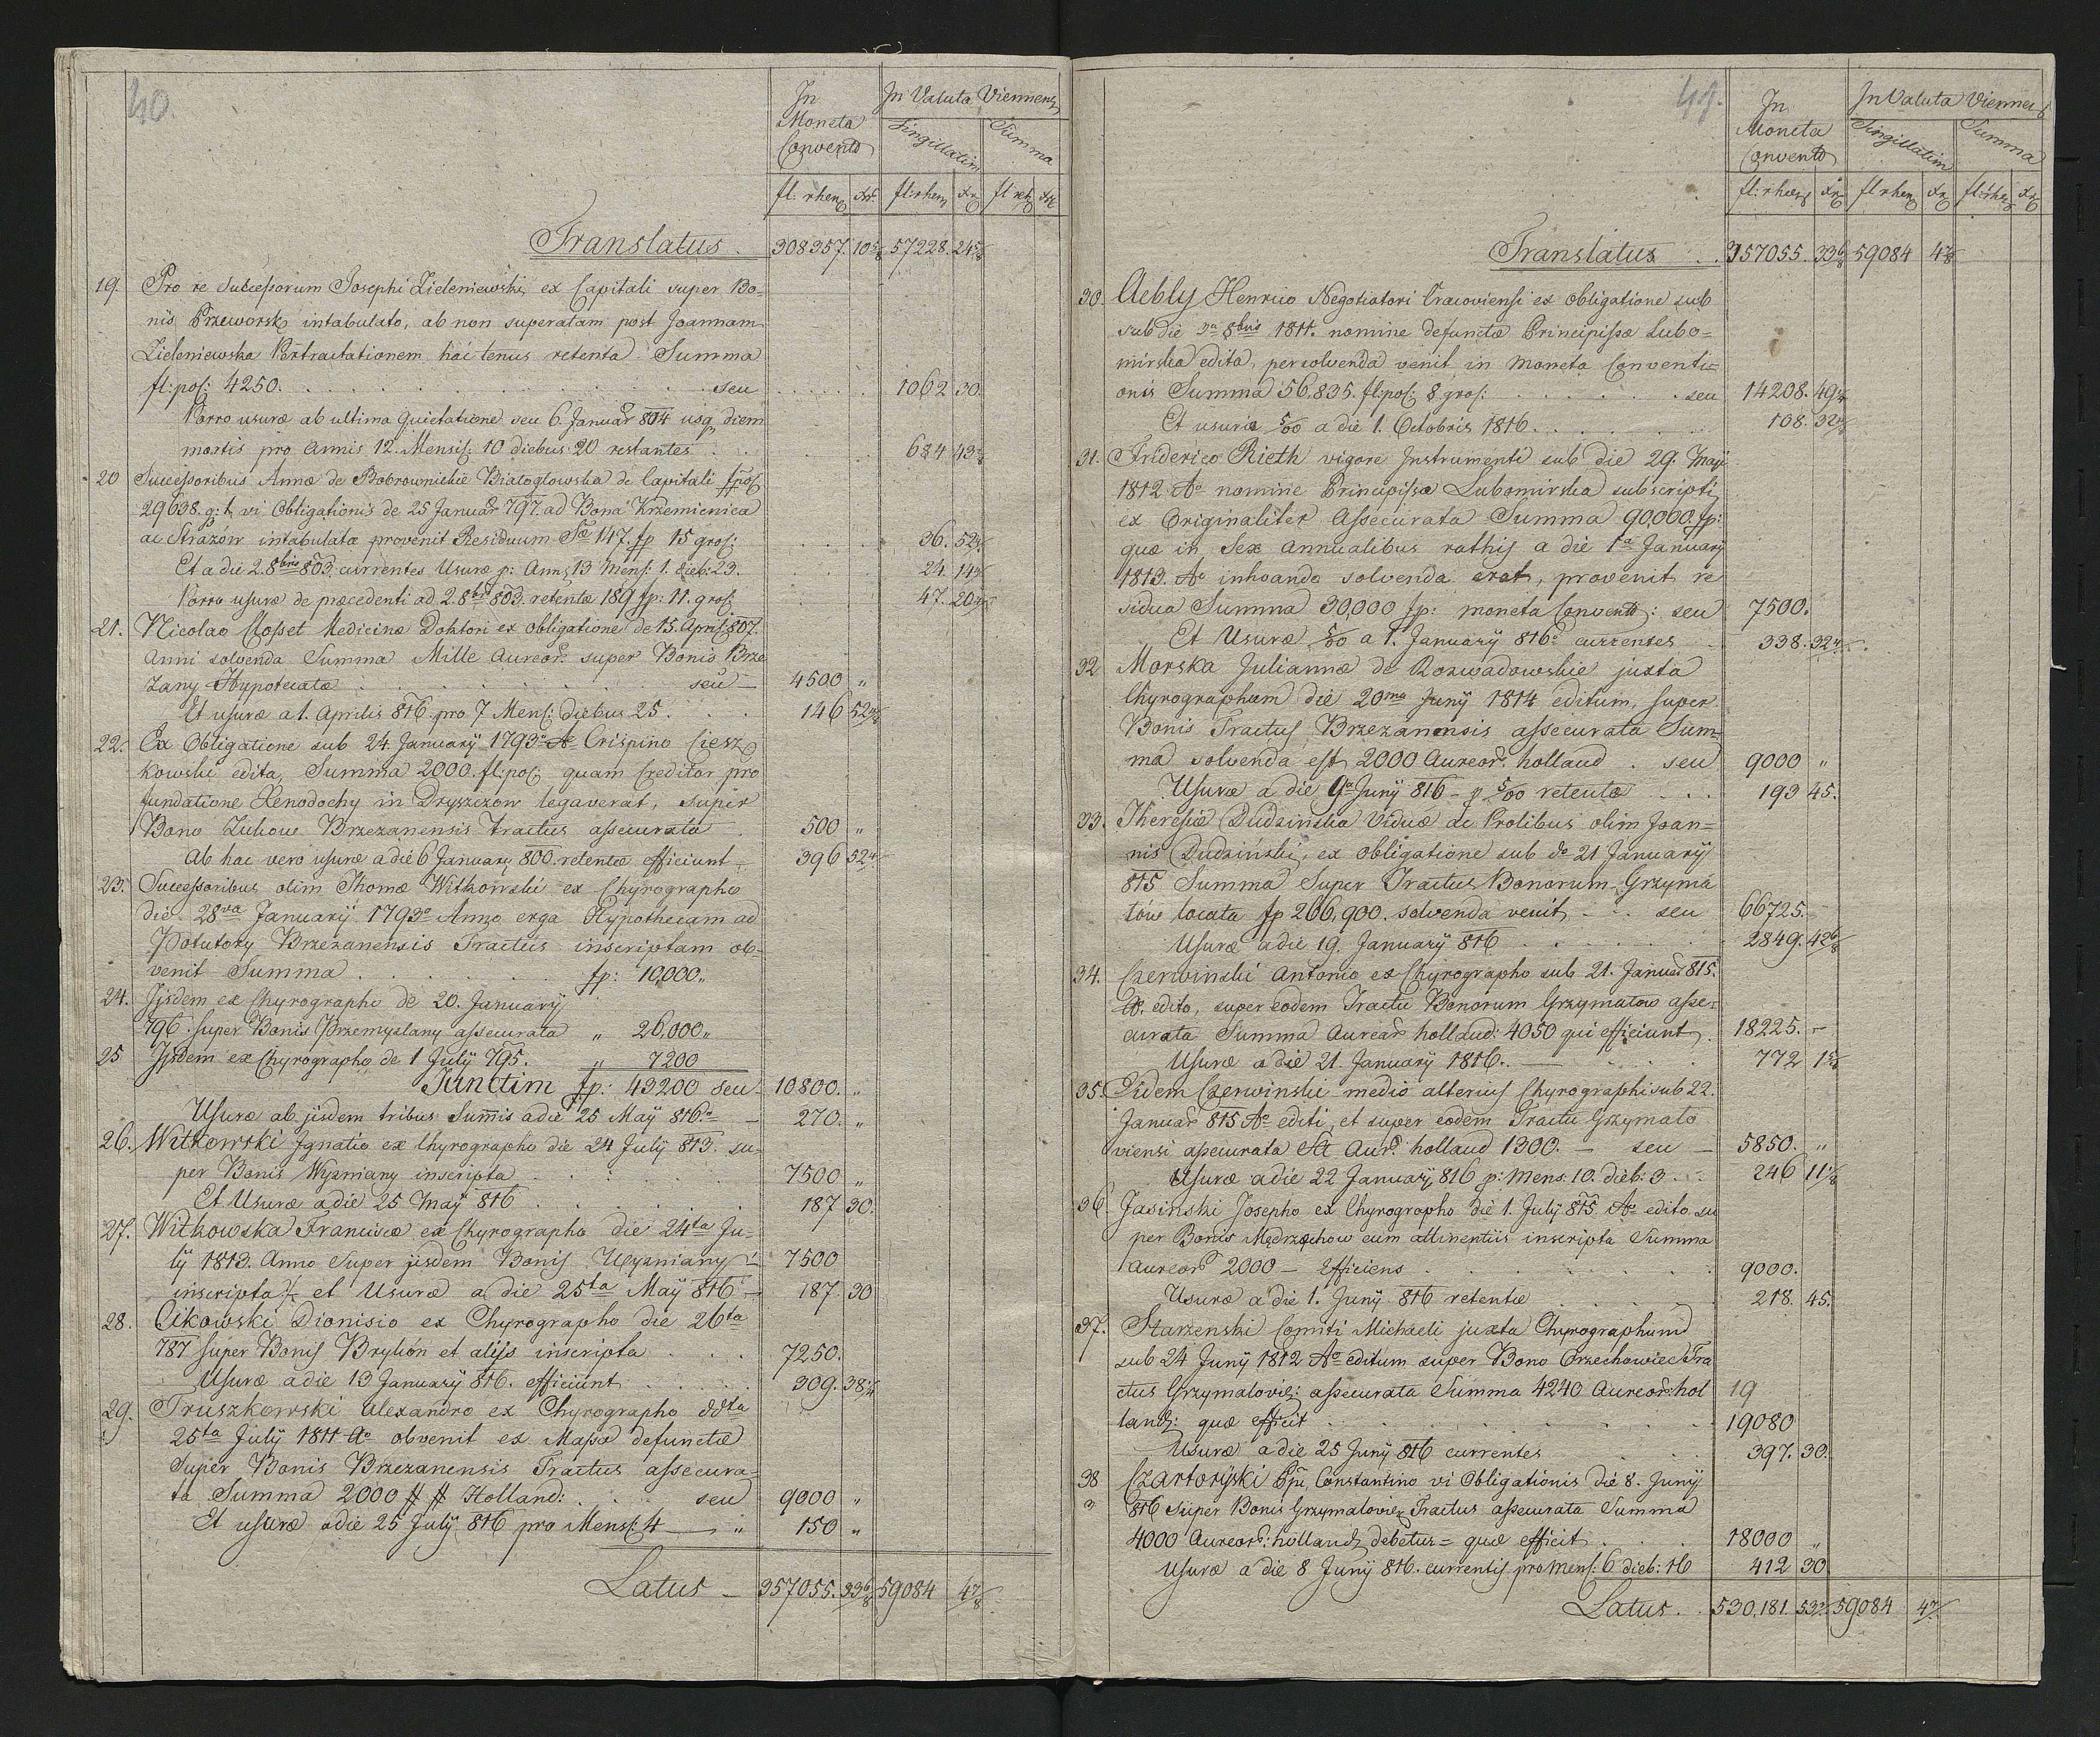 40.
In Moneta Convento
In Valuta Viennens
Singillatim
Summa
fl: rhen xr. fl:rhen xr fl rh xr
Translatus . 308357. 10 5/8 57228. 24 5/8
19. Pro re Successorum Josephi Zieleniewski, ex Capitali super Bo-
nis Przeworsk intabulato, ab non superatam post Joannam
Zieleniewska Pertractationem hactenus retenta Summa
fl:pol: 4250. . . . seu . . . 1062 30.
Porro usuræ ab ultima Quietatione seu 6. Januar 804 usq diem
mortis pro Annis 12. Mensis: 10 diebus 20 restantes . . 684 43
20 Successoribus Annæ de Bobrownickie Białogłowska de Capitali
29638. g: 1, vi Obligationis de 25 Januar 797. ad Bona Krzemienica
ac Strazów intabulatæ provenit Residuum 147. fp 15 gros: . . 36. 52
Et a die 2. 8bris 803. currentes Usuræ p: Annis 13 Mens: 1. dieb: 23. 24. 14
Porro usuræ de præcedenti ad 2. 8bris 803. retentæ 189 fp: 11. gros 47. 20
21. Nicolao Closset Medicinæ Doktori ex obligatione de 15. April 807.
Anni solvenda Summa Mille Aureor. super Bonis Brze
zany Hypotecatæ . . . seu — 4500 „
Et usuræ a 1. Aprilis 816. pro 7 Mens: diebus 25 . . . 146 52
22. Ex Obligatione sub 24. January 1793 A Crispino Ciesz
kowski edita, Summa 2000. fl:pol: quam Creditor pro
fundatione Xenodochy in Dryszczow legaverat, super
Bono Zukow Brzezanensis tractus assecurata . 500 „
Ab hac vero usuræ a die 6 January 800. retentæ efficiunt – 396 52
23. Successoribus olim Thomæ Witkowski ex Chyrographo
die 28va January 1793 Anno erga Hypothecam ad
Potutory Brzezanensis Tractus inscriptam ob-
venit Summa . . . fp: 10,000 „
24. Ijsdem ex Chyrographo de 20. January
796. super Bonis Przemyslany assecurata „ 26,000 „
25 Ijsdem ex Chyrographo de 1 July 795. „ 7200
Junctim fp: 43200 seu – 10800. „
Usuræ ab ijsdem tribus Summis a die 25 May 816. – 270. „
26. Witkowski Ignatio ex Chyrographo die 24 July 813. su-
per Bonis Wyzniany inscripta . . . 7500 „
Et Usuræ a die 25 May 816 . . . 187 30.
27. Witkowska Franciscæ ex Chyrographo die 24ta Ju-
ly 1813. Anno Super ijsdem Bonis Wyzniany – 7500
inscripta et Usuræ a die 25ta May 816 – 187. 30
28. Cikowski Dionisio ex Chyrographo die 26ta
787 super Bonis Brylion et alijs inscripta . . . 7250.
Usuræ a die 13 January 816. efficiunt . . . 309. 38
29. Truszkowski Alexandro ex Chyrographo ddta
25ta July 1811 Ao obvenit ex Massa defunctæ
Super Bonis Brzezanensis Tractus assecura-
ta Summa 2000 # # Holland: . . . seu 9000 „
Et usuræ a die 25 July 816 pro Mens: 4 — „ 150 „
Latus – 357055. 33 6/8 59084 4 7/8
41.
In Moneta Convento
In Valuta Viennens
Singillatim
Summa
fl: rhen xr fl rhen xr fl: rhen xr
Translatus . . 357055. 33 6/8 59084 4 7/8
30. Aebly Henrico Negotiatori Cracoviensi ex obligatione sub
sub die 8bris 1811. nomine defunctæ Principissæ Lubo-
mirska edita, persolvenda venit in Moneta Conventi-
onis Summa 56,835. fl:pol: 8 gros: . . . seu 14208. 49
Et usuræ 5/00 a die 1. Octobris 1816. . . 108. 32
31. Friderico Rieth vigore Instrumenti sub die 29. May
1812 Ao nomine Principissæ Lubomirska subscripti
ex Originaliter Assecurata Summa 90,000. fp:
quæ in Sex annualibus rathis a die 1a January
1813. Ao inhoando solvenda erat, provenit re
sidua Summa 30,000 fp: moneta Convento: seu 7500.
Et Usuræ 5/00 a 1. January 816 currentes . 338. 32
32 Morska Juliannæ de Rozwadowskie juxta
Chyrographum die 20ma Juny 1814 editum, super
Bonis Tractus Brzezanensis assecurata Sum-
ma solvenda est 2000 Aureor. holland . seu 9000 „
Usuræ a die 9a Juny 816 – p 5/00 retentæ . . . 193 45.
33. Theresiæ Dudzinska Viduæ ac Prolibus olim Joan-
nis Dudzinski, ex obligatione sub do 21 January
815 Summa Super Tractus Bonorum Grzyma
łów locata fp 266,900. solvenda venit, . . . seu 66725.
Usuræ a die 19. January 816 . . . 2849. 42 6/8
34. Czerwinski Antonio ex Chyrographo sub 21. Januar 815.
Ao. edito, super eodem Tractu Bonorum Grzymalow asse-
curata Summa Aureor holland: 4050 qui efficiunt . 18225. –
Usuræ a die 21. January 1816. — . . . 772 1
35. Eidem Czerwinski medio alterius Chyrographi sub 22.
Januar 815 Ao editi, et super eodem Tractu Grzymało
viensi assecurata Sa Aur. holland 1300. – seu – 5850. „
Usuræ a die 22 January 816 p: Mens: 10. dieb: 3 . . . 246 11
36. Jasinski Josepho ex Chyrographo die 1. July 815 Ao edito su
per Bonis Mędrzechow cum attinentiis inscripta Summa
Aureor 2000 – Efficiens . . . 9000.
Usuræ a die 1. Juny 816 retentæ . . . 218. 45.
37. Starzenski Comiti Michaeli juxta Chyrographum
sub 24 Juny 1812 Ao editum super Bono Orzechowiec Tra
ctus Grzymalovie: assecurata Summa 4240 Aureor: hol 19
land: quæ efficit . . . 19080
Usuræ a die 25 Juny 816 currentes . . . 397. 30.
38 Czartoryski Ppi Constantino vi Obligationis die 8. Juny
816 Super Bonis Grzymalovie Tractus assecurata Summa
4000 Aureor: holland debetur – quæ efficit . . . 18000 „
Usuræ a die 8 Juny 816. currentis pro Mens: 6 dieb: 16 412 30
Latus . . 530,181. 53 59084 4 7/8